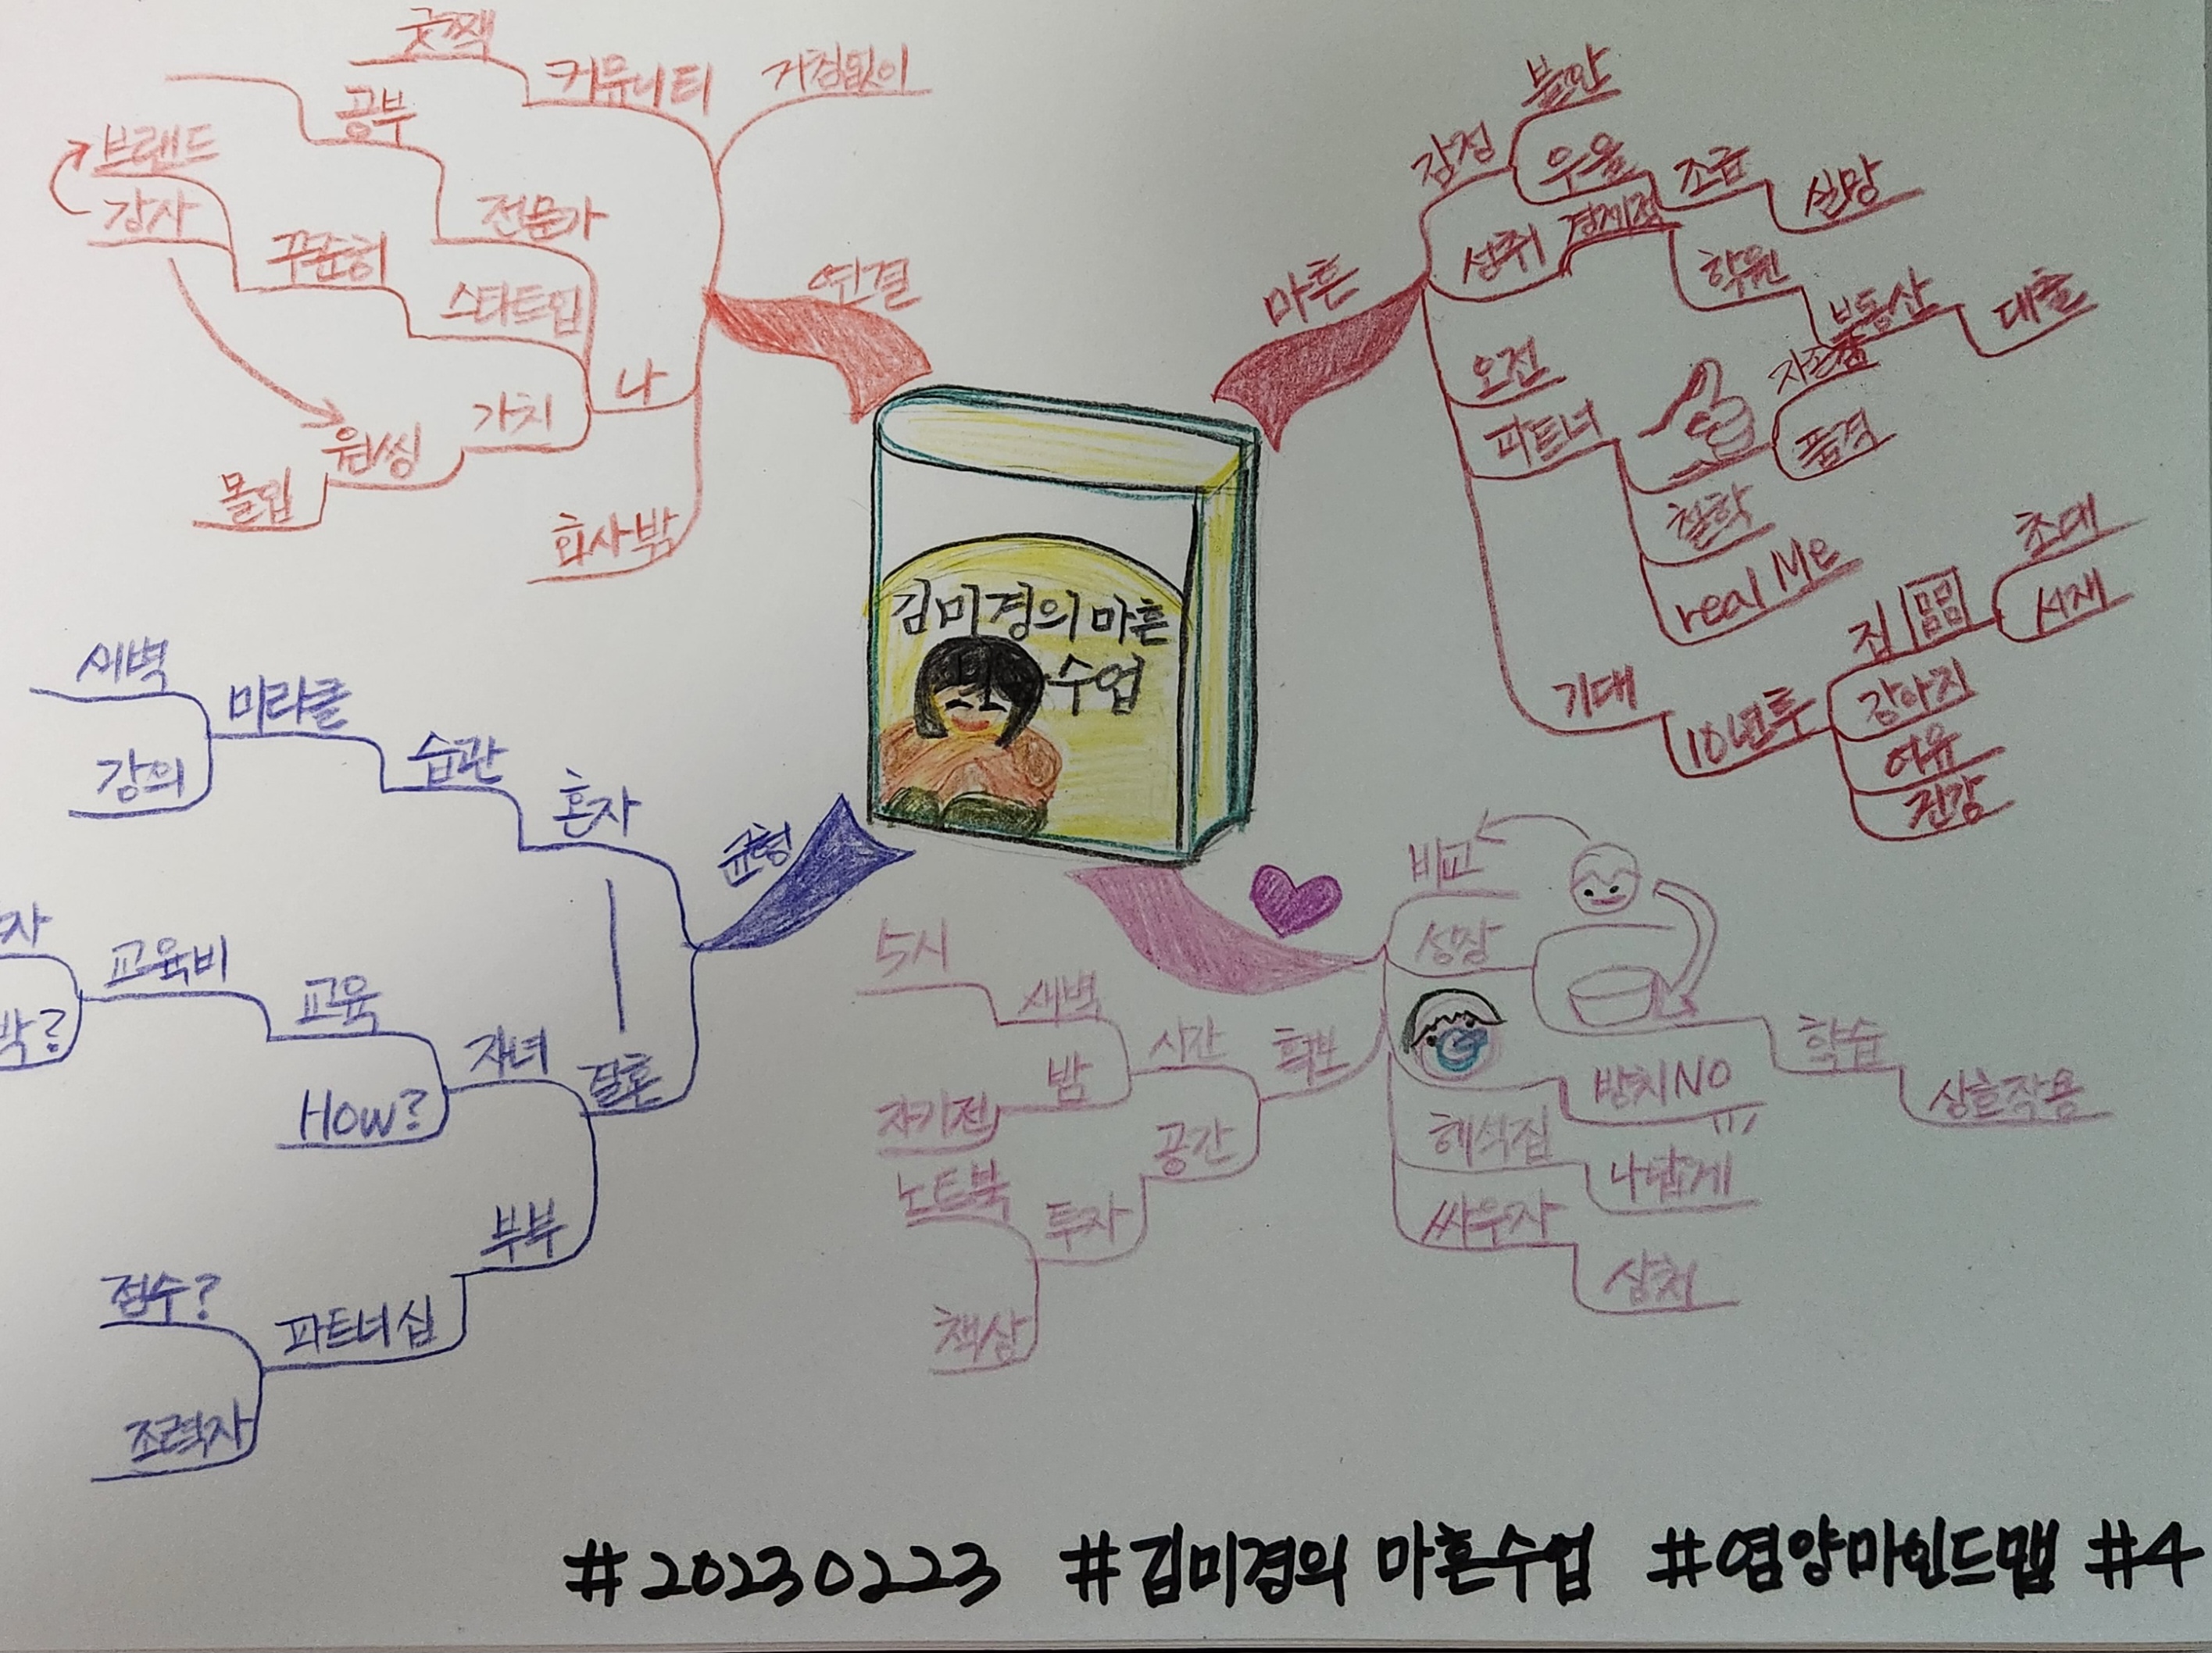 김미경의 마흔
수업
마흔
감정
불안
우울
조급
실망
성취
경계점
학원
부동산
대출
오전
파트너
자존감
품격
철학
real Me
기대
10년후
집
초대
서재
강아지
여유
건강
비교
성장
학습
상호작용
방치NO
해석집
나답게
싸우자
상처
확보
시간
새벽
5시
밤
자기전
공간
투자
노트북
책상
균형
혼자
습관
미라클
새벽
강의
결혼
자녀
교육
교육비
How?
부부
파트너십
점수?
조력자
연결
거침없이
커뮤니티
굿짹
나
전문가
공부
스타트업
꾸준히
브랜드
강사
가치
원씽
몰입
회사밖
#20230223 #김미경의 마흔수업 #엽양마인드맵 #4